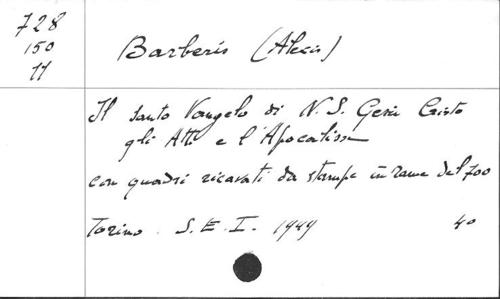 728
150
11
Barberis (Alexis)
Il santo Vangelo di N. S. Gesù Cristo
gli Atti e l'Apocalisse
con quadri ricavati da stampe in rame del 700
Torino. S. E. I. 1949 4º